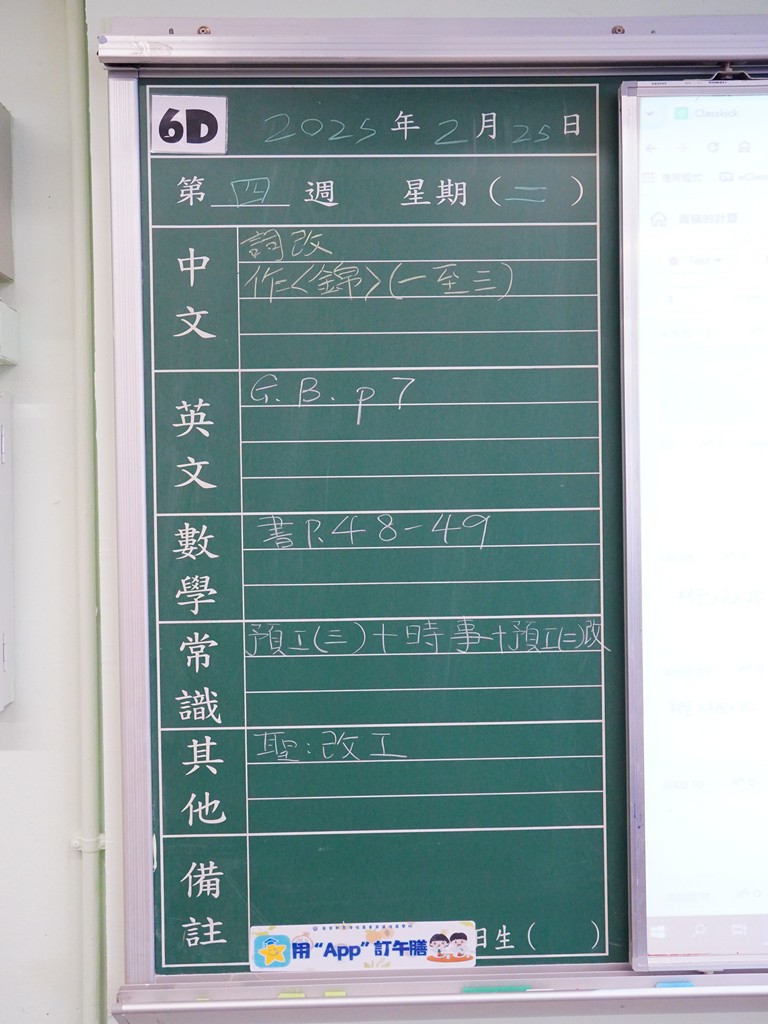 6D 2025年2月25日
第四週 星期（二）
中文
詞改
作〈錦〉(一至三)
英文
G.B. p7
數學
書P.48-49
常識
預工(三)+時事+預工(二)改
其他
聖：改工
備註
用“App”訂午膳
日生（ ）
Classkick